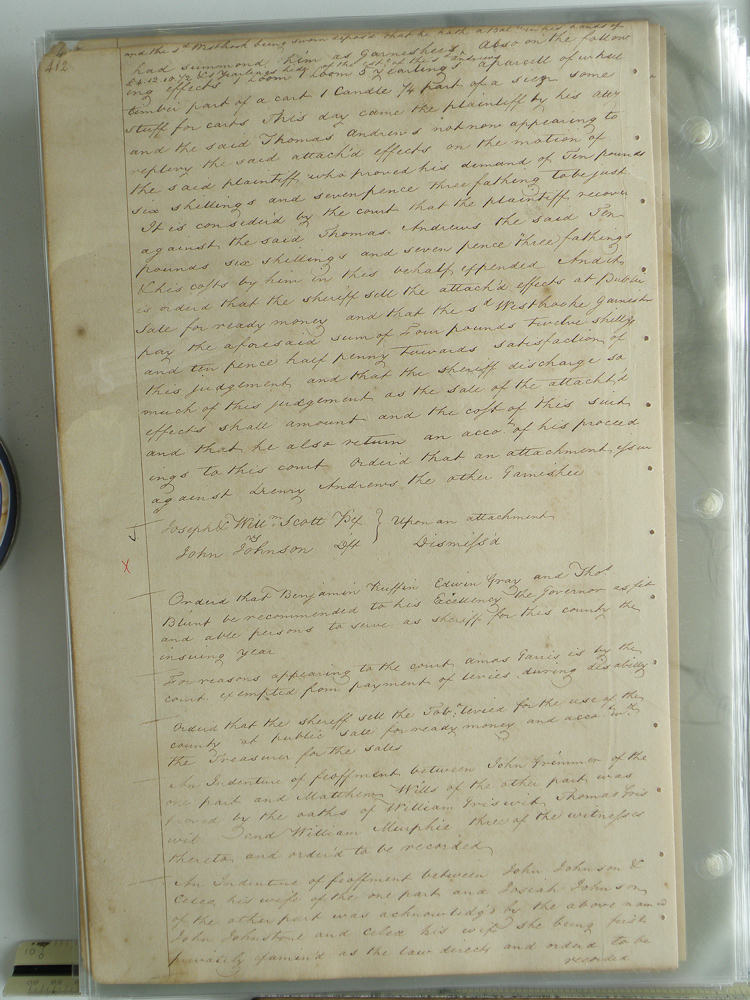 412
and the sd Westbook being sworn deposd that he hath a Bal in his hands of
had summond him as garneshee Also on the follow
£4.12.10 1/2
ing effects 1 Loom 5 Yearlings a parcell of wheel
timber part of a cart 1 Candle 3/4 part of a some
stuff for carts This day came the plaintiff by his atty
and the said Thomas Andrews not now appearing to
replevy the said attach'd effects on the motion of
the said plaintiff who proved his demand of Ten pounds
six shillings and seven pence three fathing to be just
It is consider'd by the court that the plaintiff recover
against the said Thomas Andrews the said Ten
pounds six shillings and seven pence three fathings
& his costs by him in this behalf expended And it
is orderd that the sheriff sell the attach'd effects at Publick
sale for ready money and that the sd Westbrooke garneshee
pay the aforesaid sum of Four pounds twelve shillgs
and ten pence half penny towards satisfaction of
this judgement and that the sheriff discharge so
much of this judgement as the sale of the attach'd
effects shall amount and the cost of this suit
and that he also return an acco.t of his proceed
ings to this court Order'd that an attachment issue
against Drewry Andrews the other Garnishee
Joseph & Will.m Scott Plf } Upon an attachment
John Johnson Dft Dismiss'd
X
Orderd that Benjamin Ruffin Edwin Gray and Tho.s
Blunt be recommended to his Excellency the Governor as fit
and able persons to serve as sheriff for this county the
insuing year
For reasons appearing to the court amos Garris is by the
court exempted from payment of levies during disability
Orderd that the sheriff sell the Tob.o levied for the use of the
county at public sale for ready money and acco.t w.th
the Treasurer for the sales
An Indenture of feoffment between John Gremmer of the
one part and Matthew Wills of the other part was
proved by the oaths of William Griswit Thomas Gris
wit and William Murphie three of the witnesses
thereto and order'd to be recorded
An Indenture of feoffment between John Johnson &
Celea his wife of the one part and Josiah Johnson
of the other part was acknowledg'd by the above named
John Johnstone and Celea his wife she being first
privately examin'd as the law directs and orderd to be
recorded